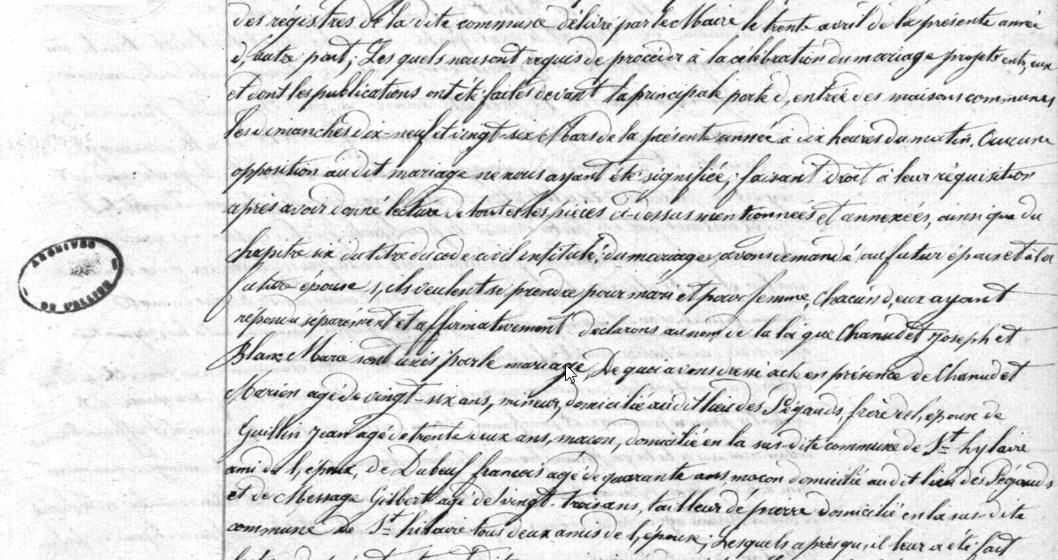 des régistres de la dite commune délivré par le Maire le trente avril de la présente année
d'autre part; Lesquels nous ont requis de procéder à la célébration du mariage projeté entre eux
et dont les publications ont été faites devant la principale porte d'entrée des maisons communes
les dimanches dix-neuf et vingt-six Mars de la présente année à dix heures du matin. Aucune
opposition au dit mariage ne nous ayant été signifiée; faisant droit à leur réquisition
après avoir donné lecture de toutes les pièces ci-dessus mentionnées et annexées, ainsi que du
chapitre six du titre du code civil intitulé; du mariage, avons demandé au futur époux et à la
future épouse s'ils veulent se prendre pour mari et pour femme, Chacun d'eux ayant
répondu séparément et affirmativement déclarons au nom de la loi que Chanudet Joseph et
Blanc Marie sont unis par le mariage, De quoi avons dressé acte en présence de Chanudet
Marien agé de vingt-six ans, mineur, domicilié au dit lieu des Pégauds, frère de l'époux de
Guillin Jean agé de trente deux ans, maçon, domicilié en la sus-dite commune de St hylaire
ami de l'époux, de Dubeuf francois agé de quarante ans maçon domicilié au dit lieu des Pégauds
et de Message Gilbert agé de vingt-trois ans, tailleur de pierre domicilié en la sus-dite
commune de St hilaire tous deux amis de l'époux; Lesquels après qu'il leur a été fait
ARCHIVES
DE L'ALLIER